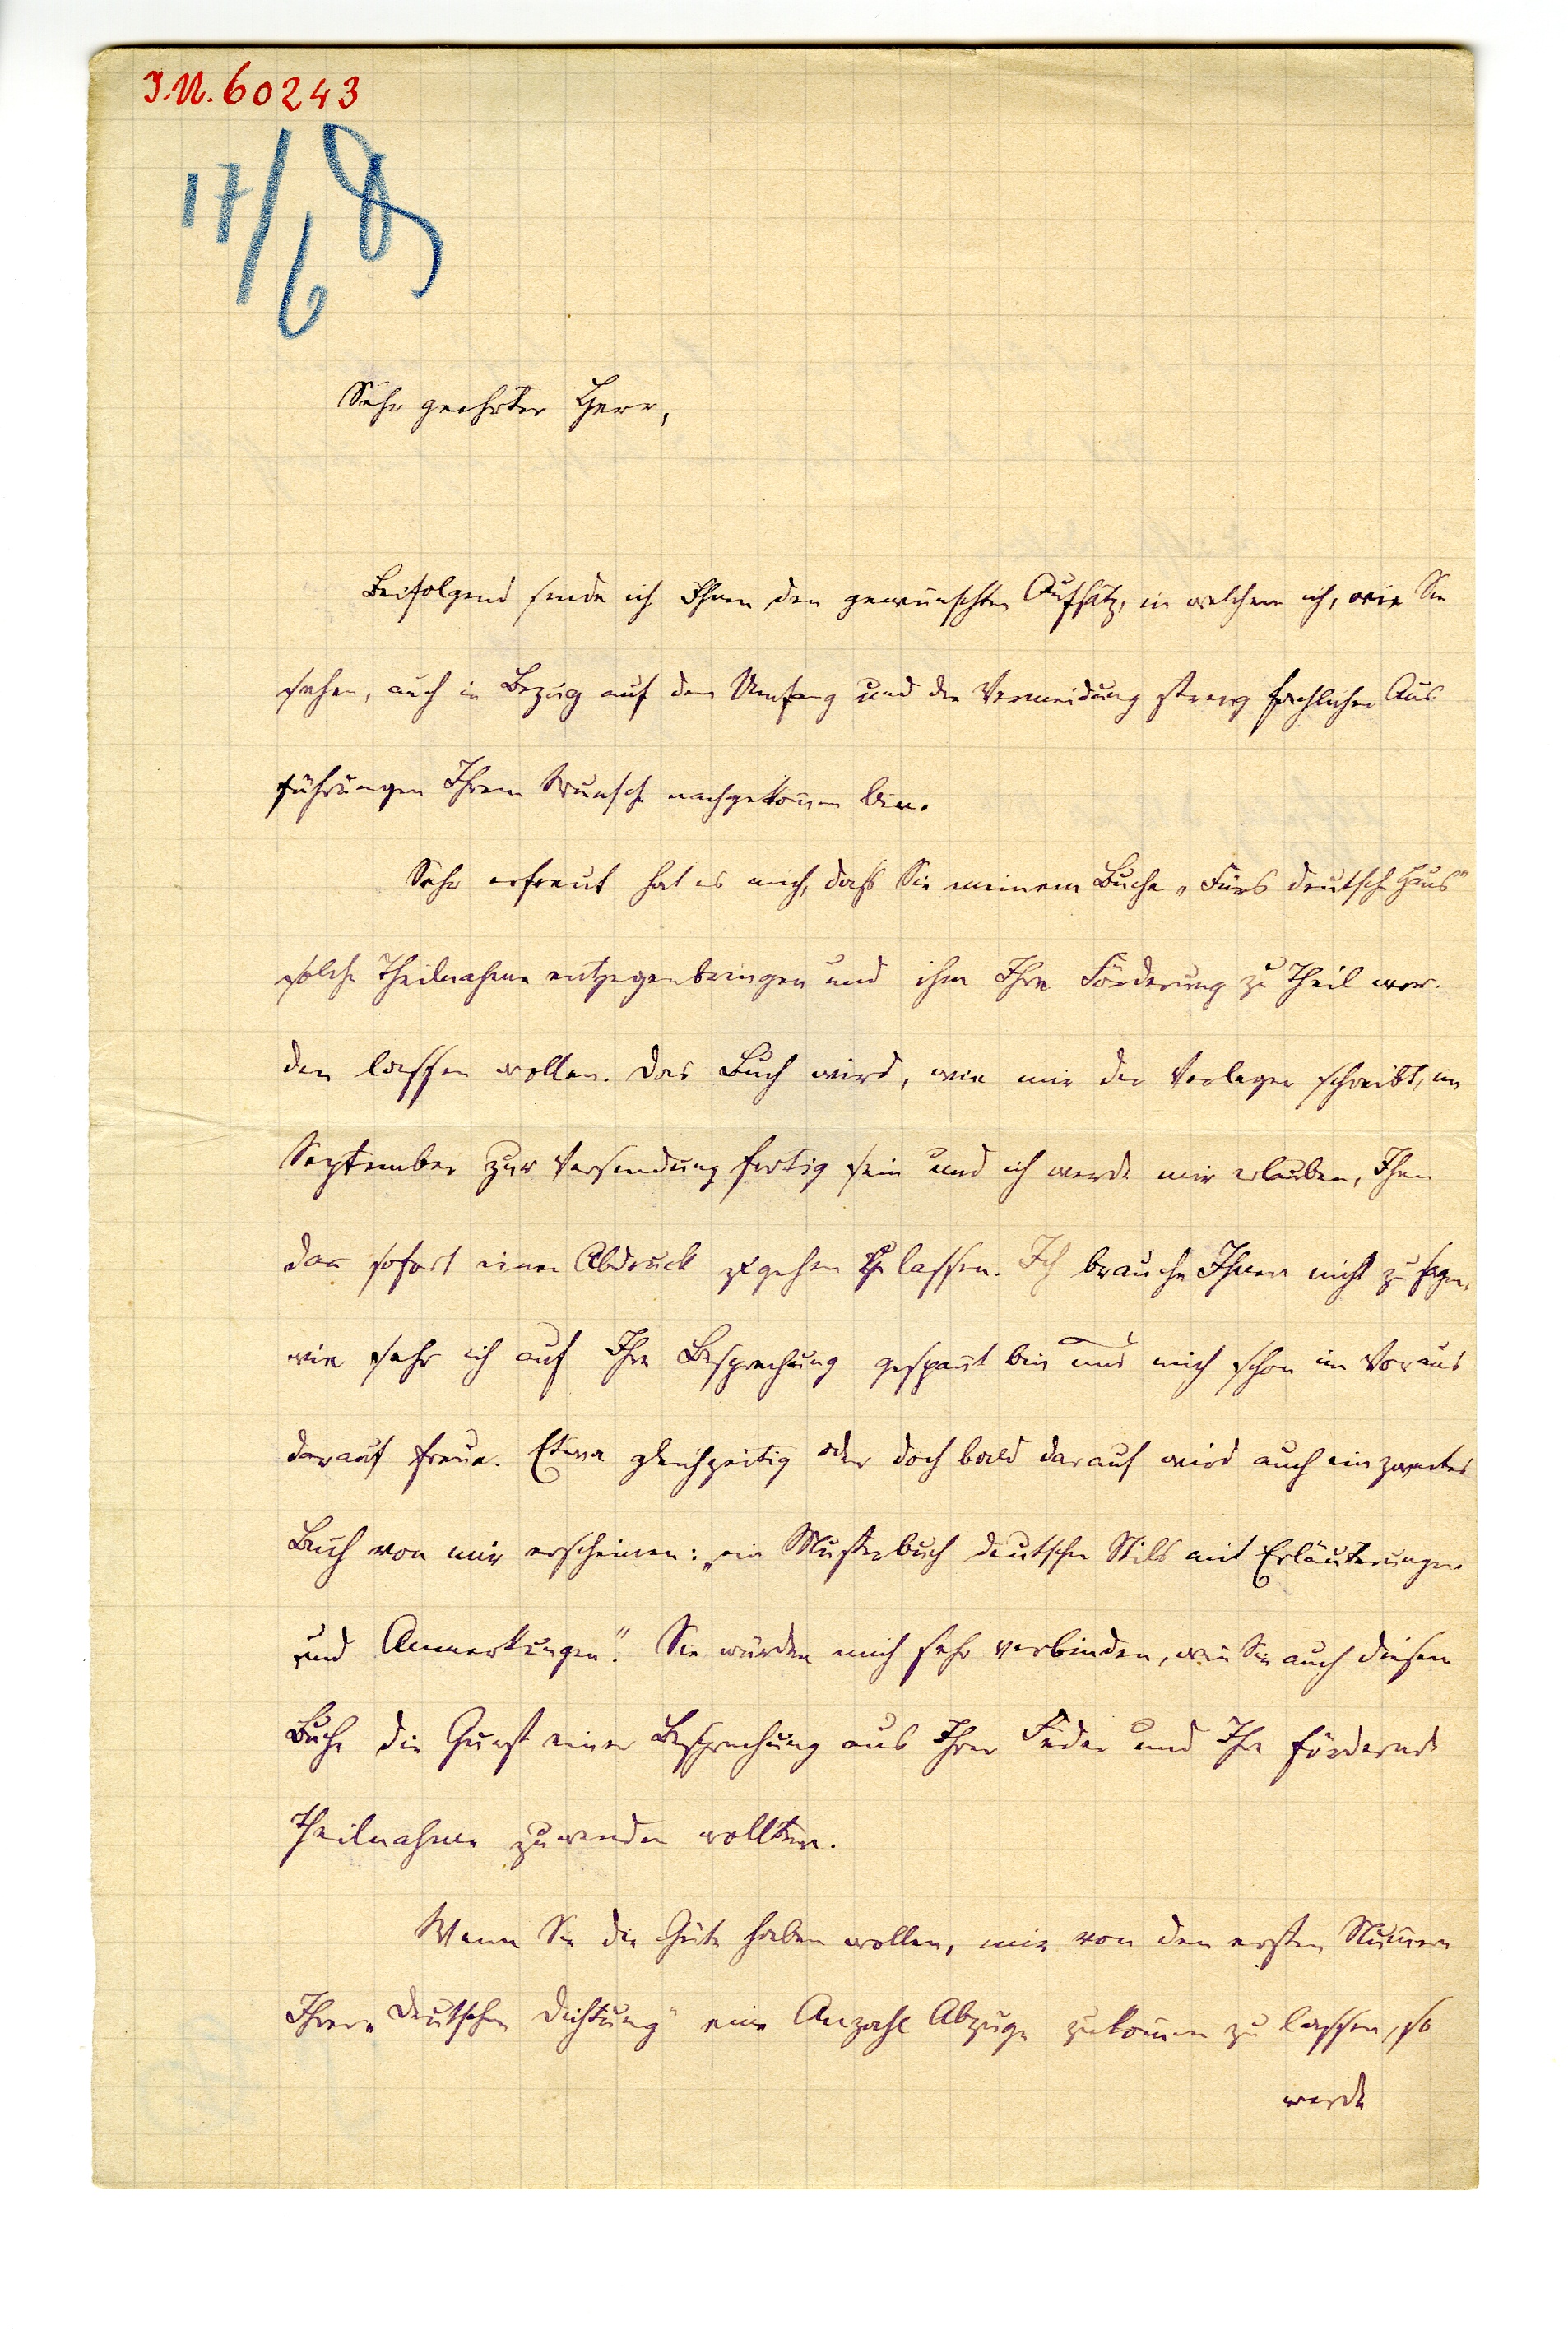 I.N. 60243
17/6
Sehr geehrter Herr,
Beifolgend sende ich Ihnen den gewünschten Aufsatz, in welchem ich, wie Sie
sehen, auch in Bezug auf den Umfang und die Vermeidung streng fachlicher Aus
führungen Ihrem Wunsche nachgekom̅en bin.
Sehr erfreut hat es mich, daß Sie meinem Buche „Fürs deutsche Haus“
solche Theilnahme entgegenbringen und ihm Ihre Förderung zu Theil wer-
den lassen wollen. Das Buch wird, wie mir der Verleger schreibt, im
September zur Versendung fertig sein und ich werde mir erlauben, Ihnen
dan̅ sofort einen Abdruck zugehen zu lassen. Ich brauche Ihnen nicht zu sagen,
wie sehr ich auf Ihre Besprechung gespan̅t bin und mich schon im Voraus
darauf freue. Etwa gleichzeitig oder doch bald darauf wird auch ein zweites
Buch von mir erscheinen: „ein Musterbuch deutschen Stils mit Erläuterungen
und Anmerkungen“. Sie würden mich sehr verbinden, wen̅ Sie auch diesem
Buche die Gunst einer Besprechung aus Ihrer Feder und Ihre fördernde
Theilnahme zuwenden wollten.
Wenn Sie die Güte haben wollen, mir von den ersten Num̅ern
Ihrer „Deutschen Dichtung“ eine Anzahl Abzüge zukom̅en zu lassen, so
werde